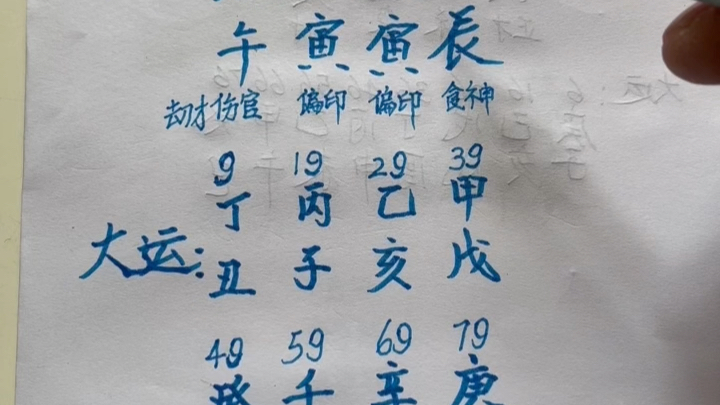 午 寅 寅 辰
劫才伤官 偏印 偏印 食神
9 19 29 39
丁 丙 乙 甲
大运: 丑 子 亥 戌
49 59 69 79
癸 壬 辛 庚